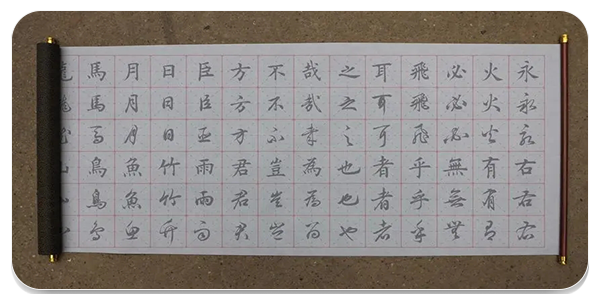 永永永右右右
火火火有有有
必必必無無無
飛飛飛乎乎乎
耳耳耳者者者
之之之也也也
哉哉哉為為為
不不不豈豈豈
方方方君君君
臣臣臣雨雨雨
日日日竹竹竹
月月月魚魚魚
馬馬馬鳥鳥鳥